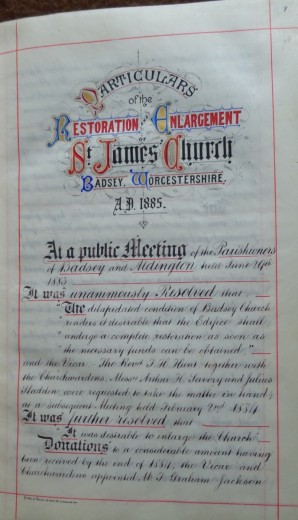 PARTICULARS
of the
RESTORATION and ENLARGEMENT
OF
St James' Church
BADSEY, WORCESTERSHIRE.
A.D. 1885.
At a public Meeting of the Parishioners
of Badsey and Aldington held June 26th
1883
It was unanimously Resolved that
"The dilapidated condition of Badsey Church
renders it desirable that the Edifice shall
undergo a complete restoration as soon as
the necessary funds can be obtained"
and the Vicar The Revd T. H. Hunt together with
the Churchwardens, Messrs Arthur H. Savory and Julius
Sladden, were requested to take the matter in hand;
at a subsequent Meeting held February 2nd 1884
It was further resolved that
"It was desirable to enlarge the Church."
Donations to a considerable amount having
been received by the end of 1884, the Vicar and
Churchwardens appointed Mr T. Graham Jackson